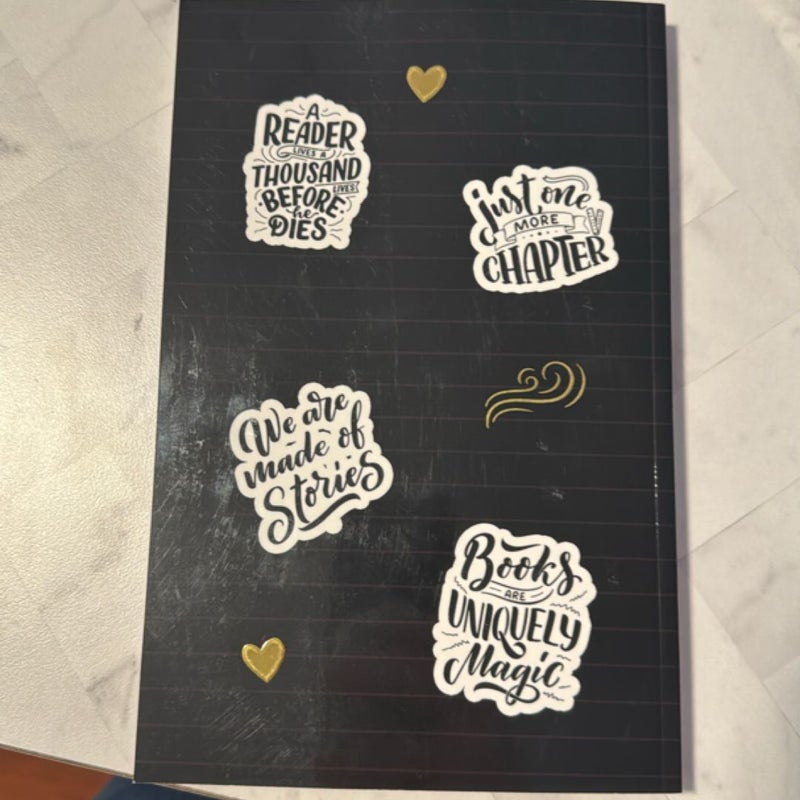 A
READER
LIVES A
THOUSAND
LIVES
BEFORE
he
DIES
just one
MORE
CHAPTER
We are
made of
Stories
Books
ARE
UNIQUELY
Magic